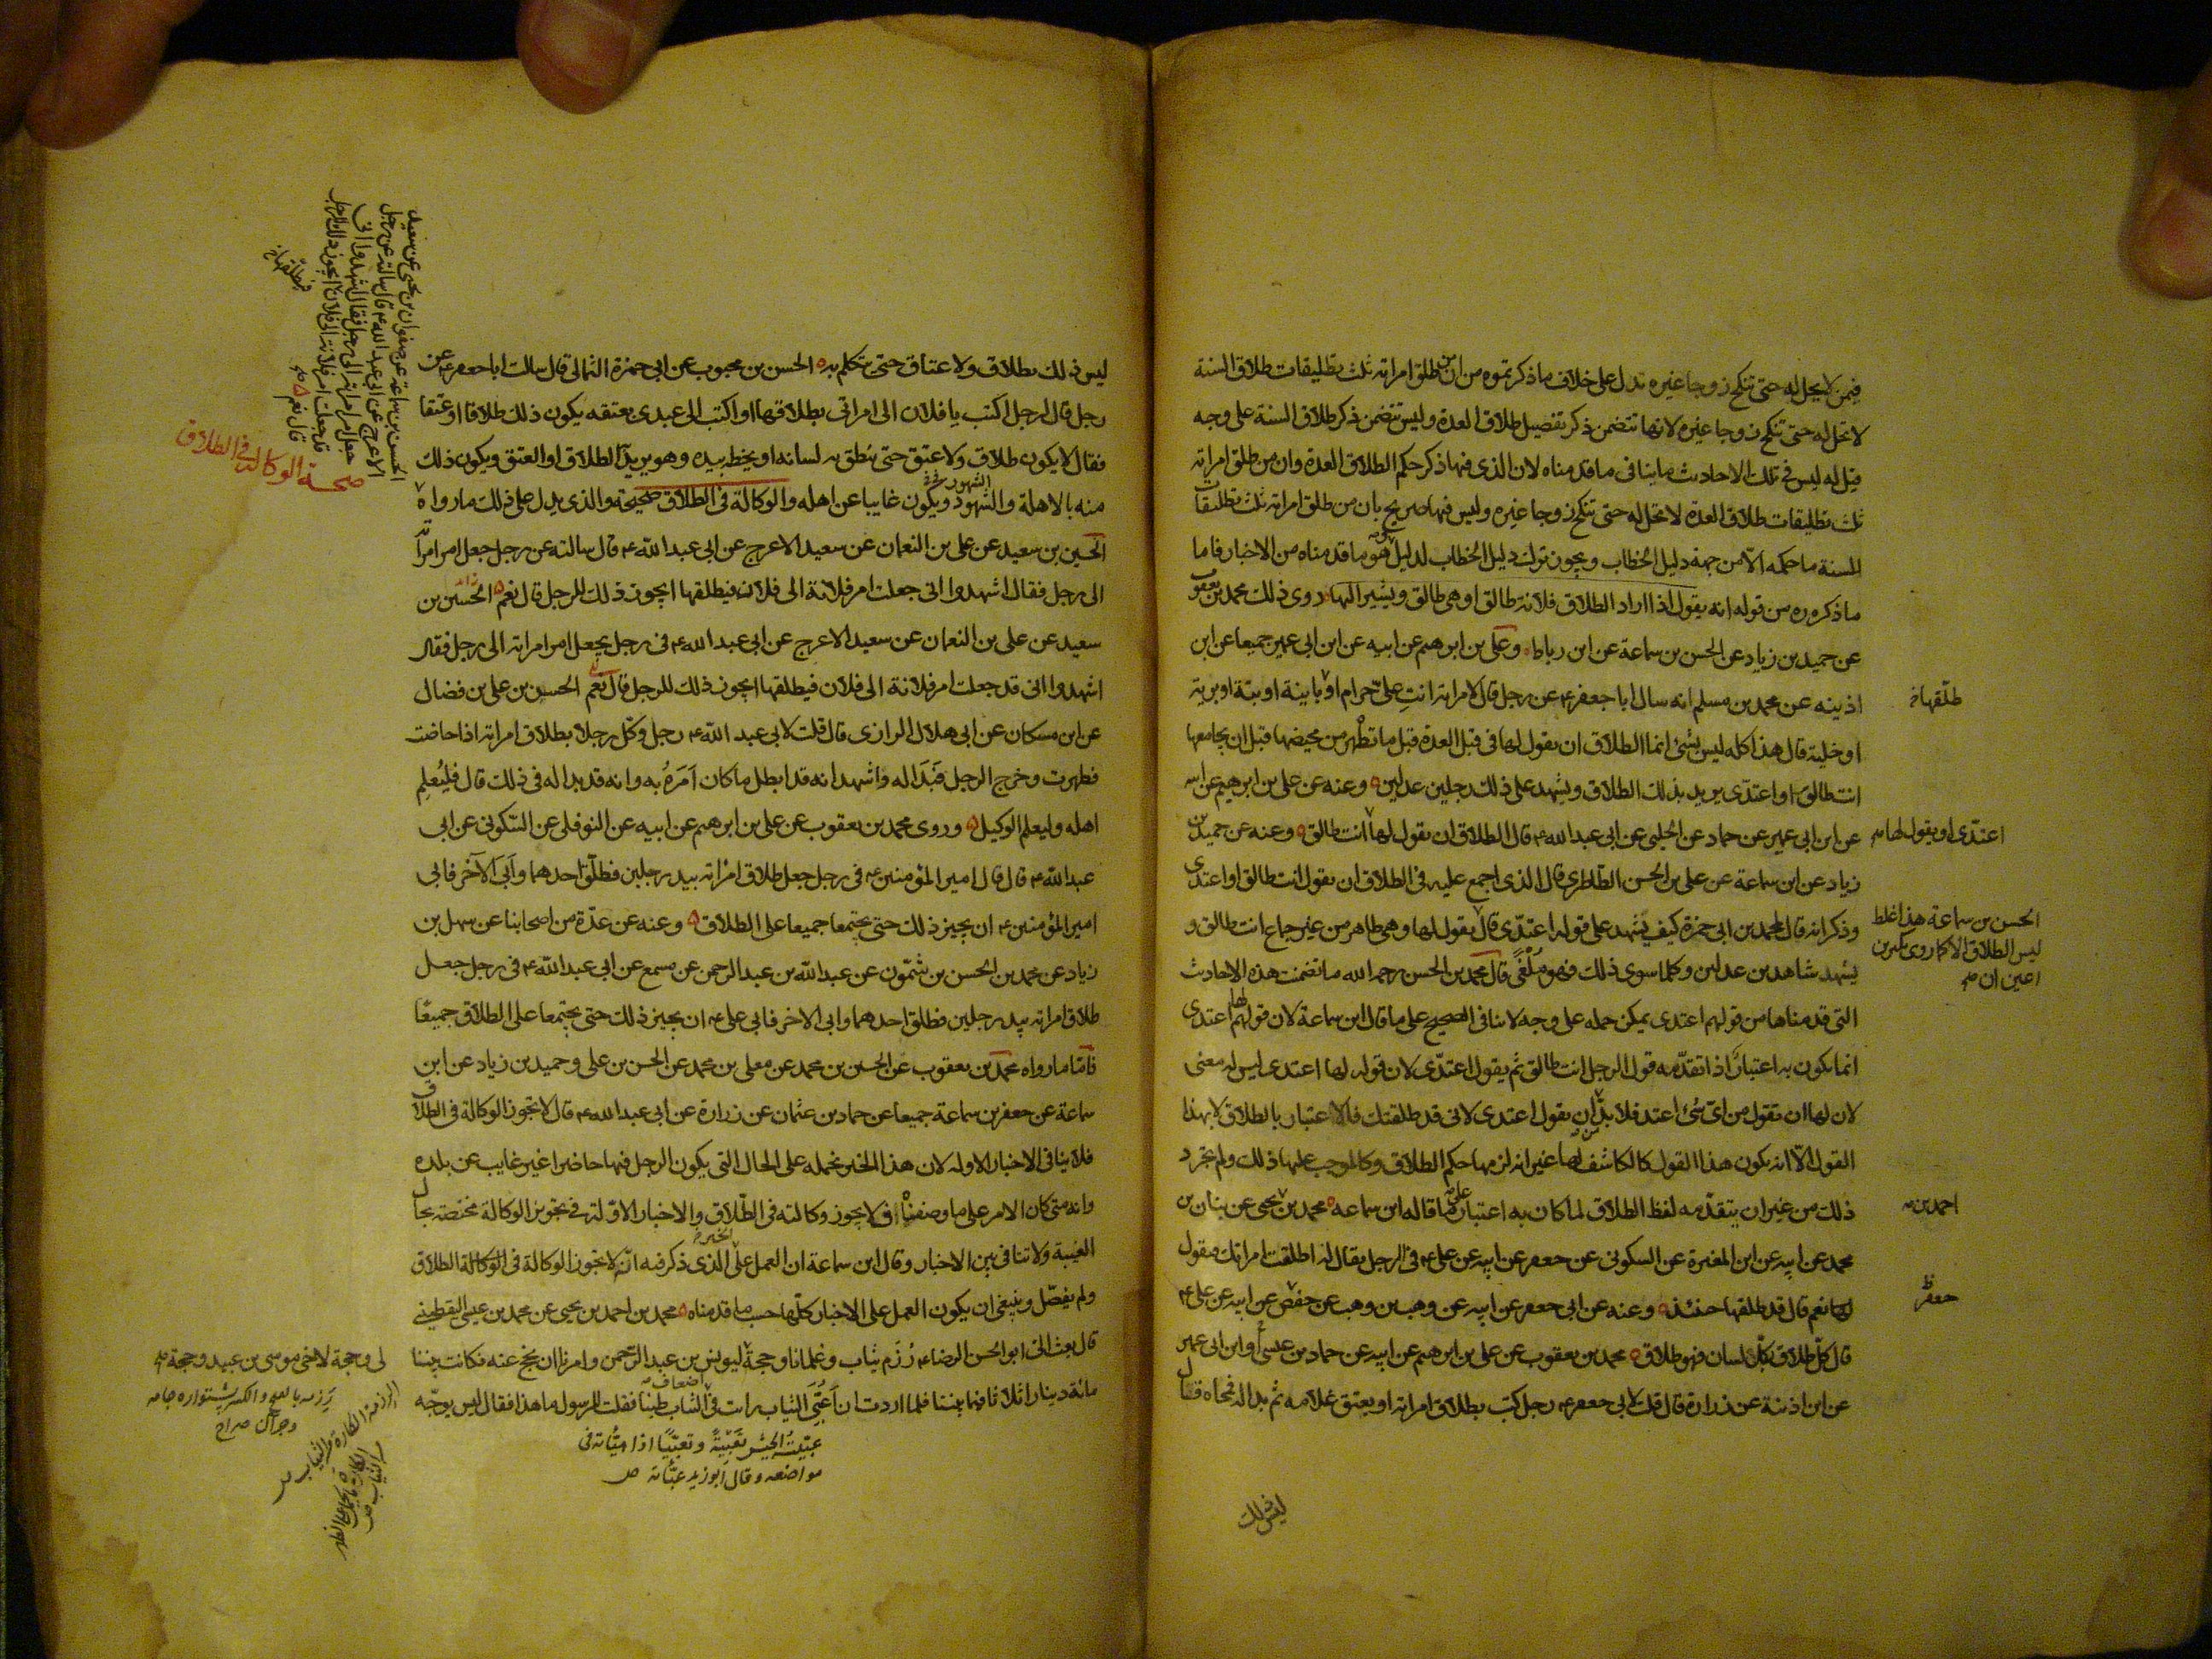 فيمن لا يحل له حتى تنكح زوجا غيره تدل على خلاف ما ذكرتموه من ان من طلق امراته ثلث تطليقات طلاق السنة
لا تحل له حتى تنكح زوجا غيره لانها تتضمن ذكر تفصيل طلاق العدة وليس تتضمن ذكر طلاق السنة على وجه
قيل له ليس في تلك الاحاديث ما ينافى ما قدمناه لان الذى فيها ذكر حكم الطلاق العدة وان من طلق امراته
ثلث تطليقات طلاق العدة لا تحل له حتى تنكح زوجا غيره وليس فيها صريح بان من طلق امراته ثلث تطليقات
للسنة ما حكمه الا من جهة دليل الخطاب ويجوز ترك دليل الخطاب لدليل وهو ما قدمناه من الاخبار فاما
ما ذكره ره من قوله انه يقول اذا اراد الطلاق فلانة طالق او هى طالق ويشير اليها روى ذلك محمد بن يعقوب
عن حميد بن زياد عن الحسن بن سماعة عن ابن رباط وعلى بن ابرهيم عن ابيه عن ابن ابى عمير جميعا عن ابن
اذينه عن محمد بن مسلم انه سال ابا جعفر ع عن رجل قال لامراته انتِ علىّ حرام او باينة او بتة او برية
طلّقها خ
او خلية قال هذا كله ليس بشئ انما الطلاق ان يقول لها فى قبل العدة قبل ما تطهر من محيضها قبل ان يجامعها
انت طالق او اعتدّى يريد بذلك الطلاق ويشهد على ذلك رجلين عدلين ه وعنه عن على بن ابرهيم عن ابيه
عن ابن ابى عمير عن حماد عن الحلبى عن ابى عبد الله ع قال الطلاق ان يقول لها انت طالق ه وعنه عن حميد بن
اعتدّى او يقول لها صح
زياد عن ابن سماعة عن على بن الحسن الطاطرى قال الذى اجمع عليه فى الطلاق ان يقول انت طالق او اعتدى
وذكر انه قال لمحمد بن ابى حمزة كيف يشهد على قوله اعتدّى قال يقول لها وهى طاهر من غير جماع انت طالق و
الحسن بن سماعة هذا غلط
ليس الطلاق الا كما روى بكير بن
اعين ان صح
يشهد شاهدين عدلين وكلما سوى ذلك فهو ملغىً قال محمد بن الحسن رحمه الله ما تضمنت هذه الاحاديث
التى قدمناها من قولهم اعتدى يمكن حمله على وجه لا ينافى الصحيح على ما قال ابن سماعة لان قولهم لها اعتدى
انما يكون به اعتبار اذا تقدمه قول الرجل انت طالق ثم يقول اعتدّى لان قوله لها اعتدى ليس له معنى
لان لها ان تقول من اىّ شئ اعتد فلا بدّ ان يقول اعتدى لانى قد طلقتك فالاعتبار بالطلاق لا بهذا
القول الّا انه يكون هذا القول كالكاشف لها عن انه لزمها حكم الطلاق وكالموجب عليها ذلك ولم تجرد
ذلك من غير ان يتقدّمه لفظ الطلاق لما كان به اعتبار على ما قاله ابن سماعه ه محمد بن يحيى عن بنان بن
احمد بن صح
محمد عن ابيه عن ابن المغيرة عن السكونى عن جعفر عن ابيه عن على ع فى الرجل يقال له اطلقت امراتك فيقول
نعم قال قد طلقها حينئذ ه وعنه عن ابى جعفر عن ابيه عن وهب بن وهب عن حفص عن ابيه عن على ع
جعفر ظ
قال كلّ طلاق بكلّ لسان فهو طلاق ه محمد بن يعقوب عن على بن ابرهيم عن ابيه عن حماد بن عيسى او ابن ابى عمير
عن ابن اذينة عن زرارة قال قلت لابى جعفر ع رجل كتب بطلاق امراته او بعتق غلامه ثم بدا له فمحاه قال
ليس ذلك
ليس ذلك بطلاق ولا عتاق حتى يتكلم به ه الحسن بن محبوب عن ابى حمزة الثمالى قال سالت ابا جعفر ع عن
رجل قال لرجل اكتب يا فلان الى امراتى بطلاقها او اكتب الى عبدى بعتقه يكون ذلك طلاقا او عتقا
فقال لا يكون طلاق ولا عتق حتى ينطق به لسانه او يخطه بيده وهو يريد الطلاق او العتق ويكون ذلك
منه بالاهلة والشهود ويكون غايبا عن اهله والوكالة فى الطلاق صحيحة والذى يدل على ذلك ما رواه
الشهور خ
صحة الوكالة فى الطلاق
الحسين بن سعيد عن على بن النعمان عن سعيد الاعرج عن ابى عبد الله ع قال سالته عن رجل جعل امر امراته
الى رجل فقال اشهدوا انى جعلت امر فلانة الى فلان فيطلقها ايجوز ذلك للرجل قال نعم ه الحسين بن
سعيد عن على بن النعمان عن سعيد الاعرج عن ابى عبد الله ع فى رجل يجعل امر امراته الى رجل فقال
اشهدوا انى قد جعلت امر فلانة الى فلان فيطلقها ايجوز ذلك للرجل قال نعم الحسن بن على بن فضال
الحسن بن سماعة عن صفوان بن يحيى عن سعيد
الاعرج عن ابى عبد الله ع قال سالته عن رجل
جعل امر امراته الى رجل فقال اشهدوا انى
قد جعلت امر فلانة الى فلان ايجوز ذلك للرجل
قال نعم ه صح
فيطلّقها خ
عن ابن مسكان عن ابى هلال الرازى قال قلت لابى عبد الله ع رجل وكّل رجلا بطلاق امراته اذا حاضت
فطهرت وخرج الرجل فبَدَا له واشهد انه قد ابطل ما كان اَمَرَهُ به وانه قد بدا له فى ذلك قال فليُعلِم
اهله وليعلم الوكيل ه وروى محمد بن يعقوب عن على بن ابرهيم عن ابيه عن النوفلى عن السّكونى عن ابى
عبد الله ع قال قال امير المؤمنين ع فى رجل جعل طلاق امراته بيد رجلين فطلّق احدهما واَبَى الآخر فابى
امير المؤمنين ع ان يجيز ذلك حتى يجتمعا جميعا على الطلاق ه وعنه عن عدّة من اصحابنا عن سهل بن
زياد عن محمد بن الحسن بن شمّون عن عبد الله بن عبد الرحمن عن مسمع عن ابى عبد الله ع فى رجل جعل
طلاق امراته بيد رجلين فطلق احدهما وابى الاخر فابى على ع ان يجيز ذلك حتى يجتمعا على الطلاق جميعًا
فامّا ما رواه محمد بن يعقوب عن الحسين بن محمد عن معلى بن محمد عن الحسن بن على وحميد بن زياد عن ابن
سماعة عن جعفر بن سماعة جميعا عن حماد بن عثمان عن زرارة عن ابى عبد الله ع قال لا تجوز الوكالة فى الطلاق
فلا ينافى الاخبار الاوله لان هذا الخبر نحمله على الحال التى يكون الرجل فيها حاضرا غير غايب عن بلده
وانه متى كان الامر على ما وصفناه فلا يجوز وكالته فى الطّلاق والاخبار الاوّلة فى تجويز الوكالة مختصة بحال
الغيبة ولا تنافى بين الاخبار وقال ابن سماعة ان العمل على الذى ذكر فيه انّه لا تجوز الوكالة فى الوكالة الطلاق
الخبر صح
ولم يفصّل وينبغى ان يكون العمل على الاخبار كلّها حسب ما قدمناه ه محمد بن احمد بن يحيى عن محمد بن عيسى اليقطينى
قال بعث الىّ ابو الحسن الرضا ع رُزَم ثياب وغلمانا وحجةً ليونس بن عبد الرّحمن وامرنا ان نحج عنه فكانت بيننا
لى وحجة لاخى موسى بن عبيد وحجة صح
مائة دينار اثلاثا فيما بيننا فلما اردت ان اَعَبّى الثياب رايت فى اضعاف الثياب طينا فقلت للرسول ما هذا فقال ليس يوجّه
عبّيتُ الجيش تَعْبِيَةً وتعبّيًا اذا هيّاته فى
مواضعه وقال ابوزيد عبّأته ص